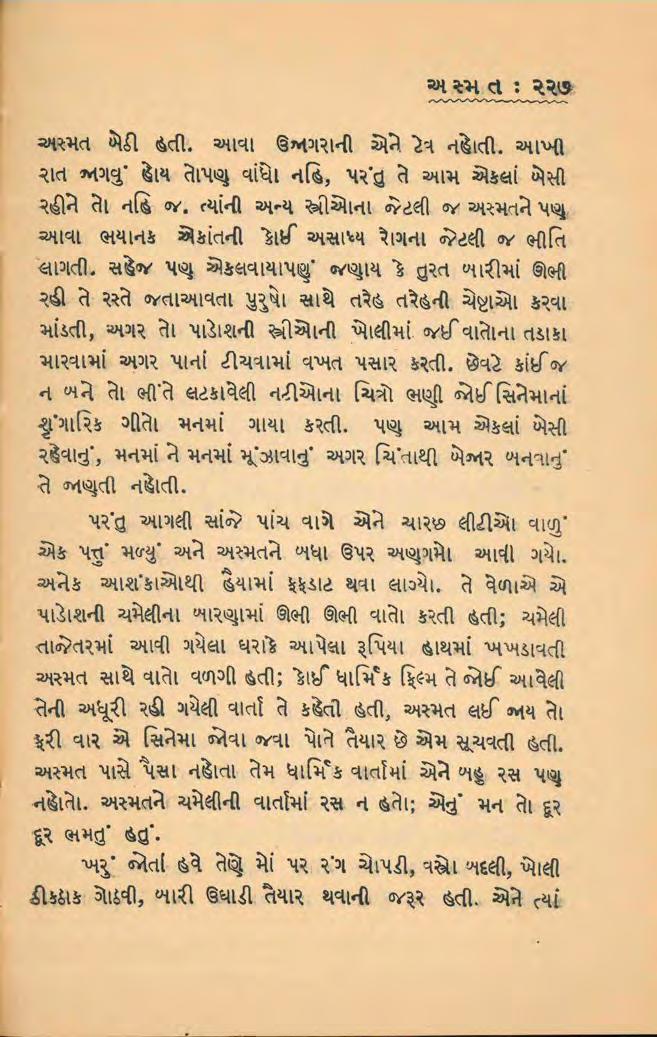 અસ્મત : ૨૨૭
અસ્મત બેઠી હતી. આવા ઉજાગરાની એને ટેવ નહોતી. આખી
રાત જાગવું હોય તોપણ વાંધો નહિ, પરંતુ તે આમ એકલાં બેસી
રહીને તો નહિ જ. ત્યાંની અન્ય સ્ત્રીઓના જેટલી જ અસ્મતને પણ
આવા ભયાનક એકાંતની કોઈ અસાધ્ય રોગના જેટલી જ ભીતિ
લાગતી. સહેજ પણ એકલવાયાપણું જણાય કે તુરત બારીમાં ઊભી
રહી તે રસ્તે જતાઆવતા પુરુષો સાથે તરેહ તરેહની ચેષ્ટાઓ કરવા
માંડતી, અગર તો પાડોશની સ્ત્રીઓની ખોલીમાં જઈ વાતોના તડાકા
મારવામાં અગર પાનાં ટીચવામાં વખત પસાર કરતી. છેવટે કાંઈ જ
ન બને તો ભીંતે લટકાવેલી નટીઓના ચિત્રો ભણી જોઈ સિનેમાનાં
શૃંગારિક ગીતો મનમાં ગાયા કરતી. પણ આમ એકલાં બેસી
રહેવાનું, મનમાં ને મનમાં મૂંઝાવાનું અગર ચિંતાથી બેજાર બનવાનું
તે જાણતી નહોતી.
પરંતુ આગલી સાંજે પાંચ વાગે એને ચારછ લીટીઓ વાળું
એક પત્તું મળ્યું અને અસ્મતને બધા ઉપર અણગમો આવી ગયો.
અનેક આશંકાઓથી હૈયામાં ફફડાટ થવા લાગ્યો. તે વેળાએ એ
પાડોશની ચમેલીના બારણામાં ઊભી ઊભી વાતો કરતી હતી; ચમેલી
તાજેતરમાં આવી ગયેલા ઘરાકે આપેલા રૂપિયા હાથમાં ખખડાવતી
અસ્મત સાથે વાતો વળગી હતી; કોઈ ધાર્મિક ફિલ્મ તે જોઈ આવેલી
તેની અધૂરી રહી ગયેલી વાર્તા તે કહેતી હતી, અસ્મત લઈ જાય તો
ફરી વાર એ સિનેમા જોવા જવા પોતે તૈયાર છે એમ સૂચવતી હતી.
અસ્મત પાસે પૈસા નહોતા તેમ ધાર્મિક વાર્તામાં એને બહુ રસ પણ
નહોતો. અસ્મતને ચમેલીની વાર્તામાં રસ ન હતો; એનું મન તો દૂર
દૂર ભમતું હતું.
ખરું જોતાં હવે તેણે મોં પર રંગ ચોપડી, વસ્ત્રો બદલી, ખોલી
ઠીકઠાક ગોઠવી, બારી ઉઘાડી તૈયાર થવાની જરૂર હતી. એને ત્યાં